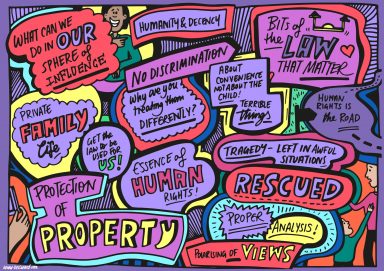 WHAT CAN WE
DO IN OUR
SPHERE OF
INFLUENCE
HUMANITY & DECENCY
BITS of
the LAW
THAT MATTER
NO DISCRIMINATION
Why are you
treating them
DIFFERENTLY?
ABOUT
CONVENIENCE
NOT ABOUT THE
CHILD!
TERRIBLE
Things
HUMAN
RIGHTS IS
the ROAD
PRIVATE
FAMILY
Life
GET the
law to be
USED FOR
US!
ESSENCE of
HUMAN
RIGHTS!
TRAGEDY - LEFT IN AWFUL
SITUATIONS
RESCUED
PROTECTION
OF
PROPERTY
PROPER
ANALYSIS!
POLARISING OF VIEWS